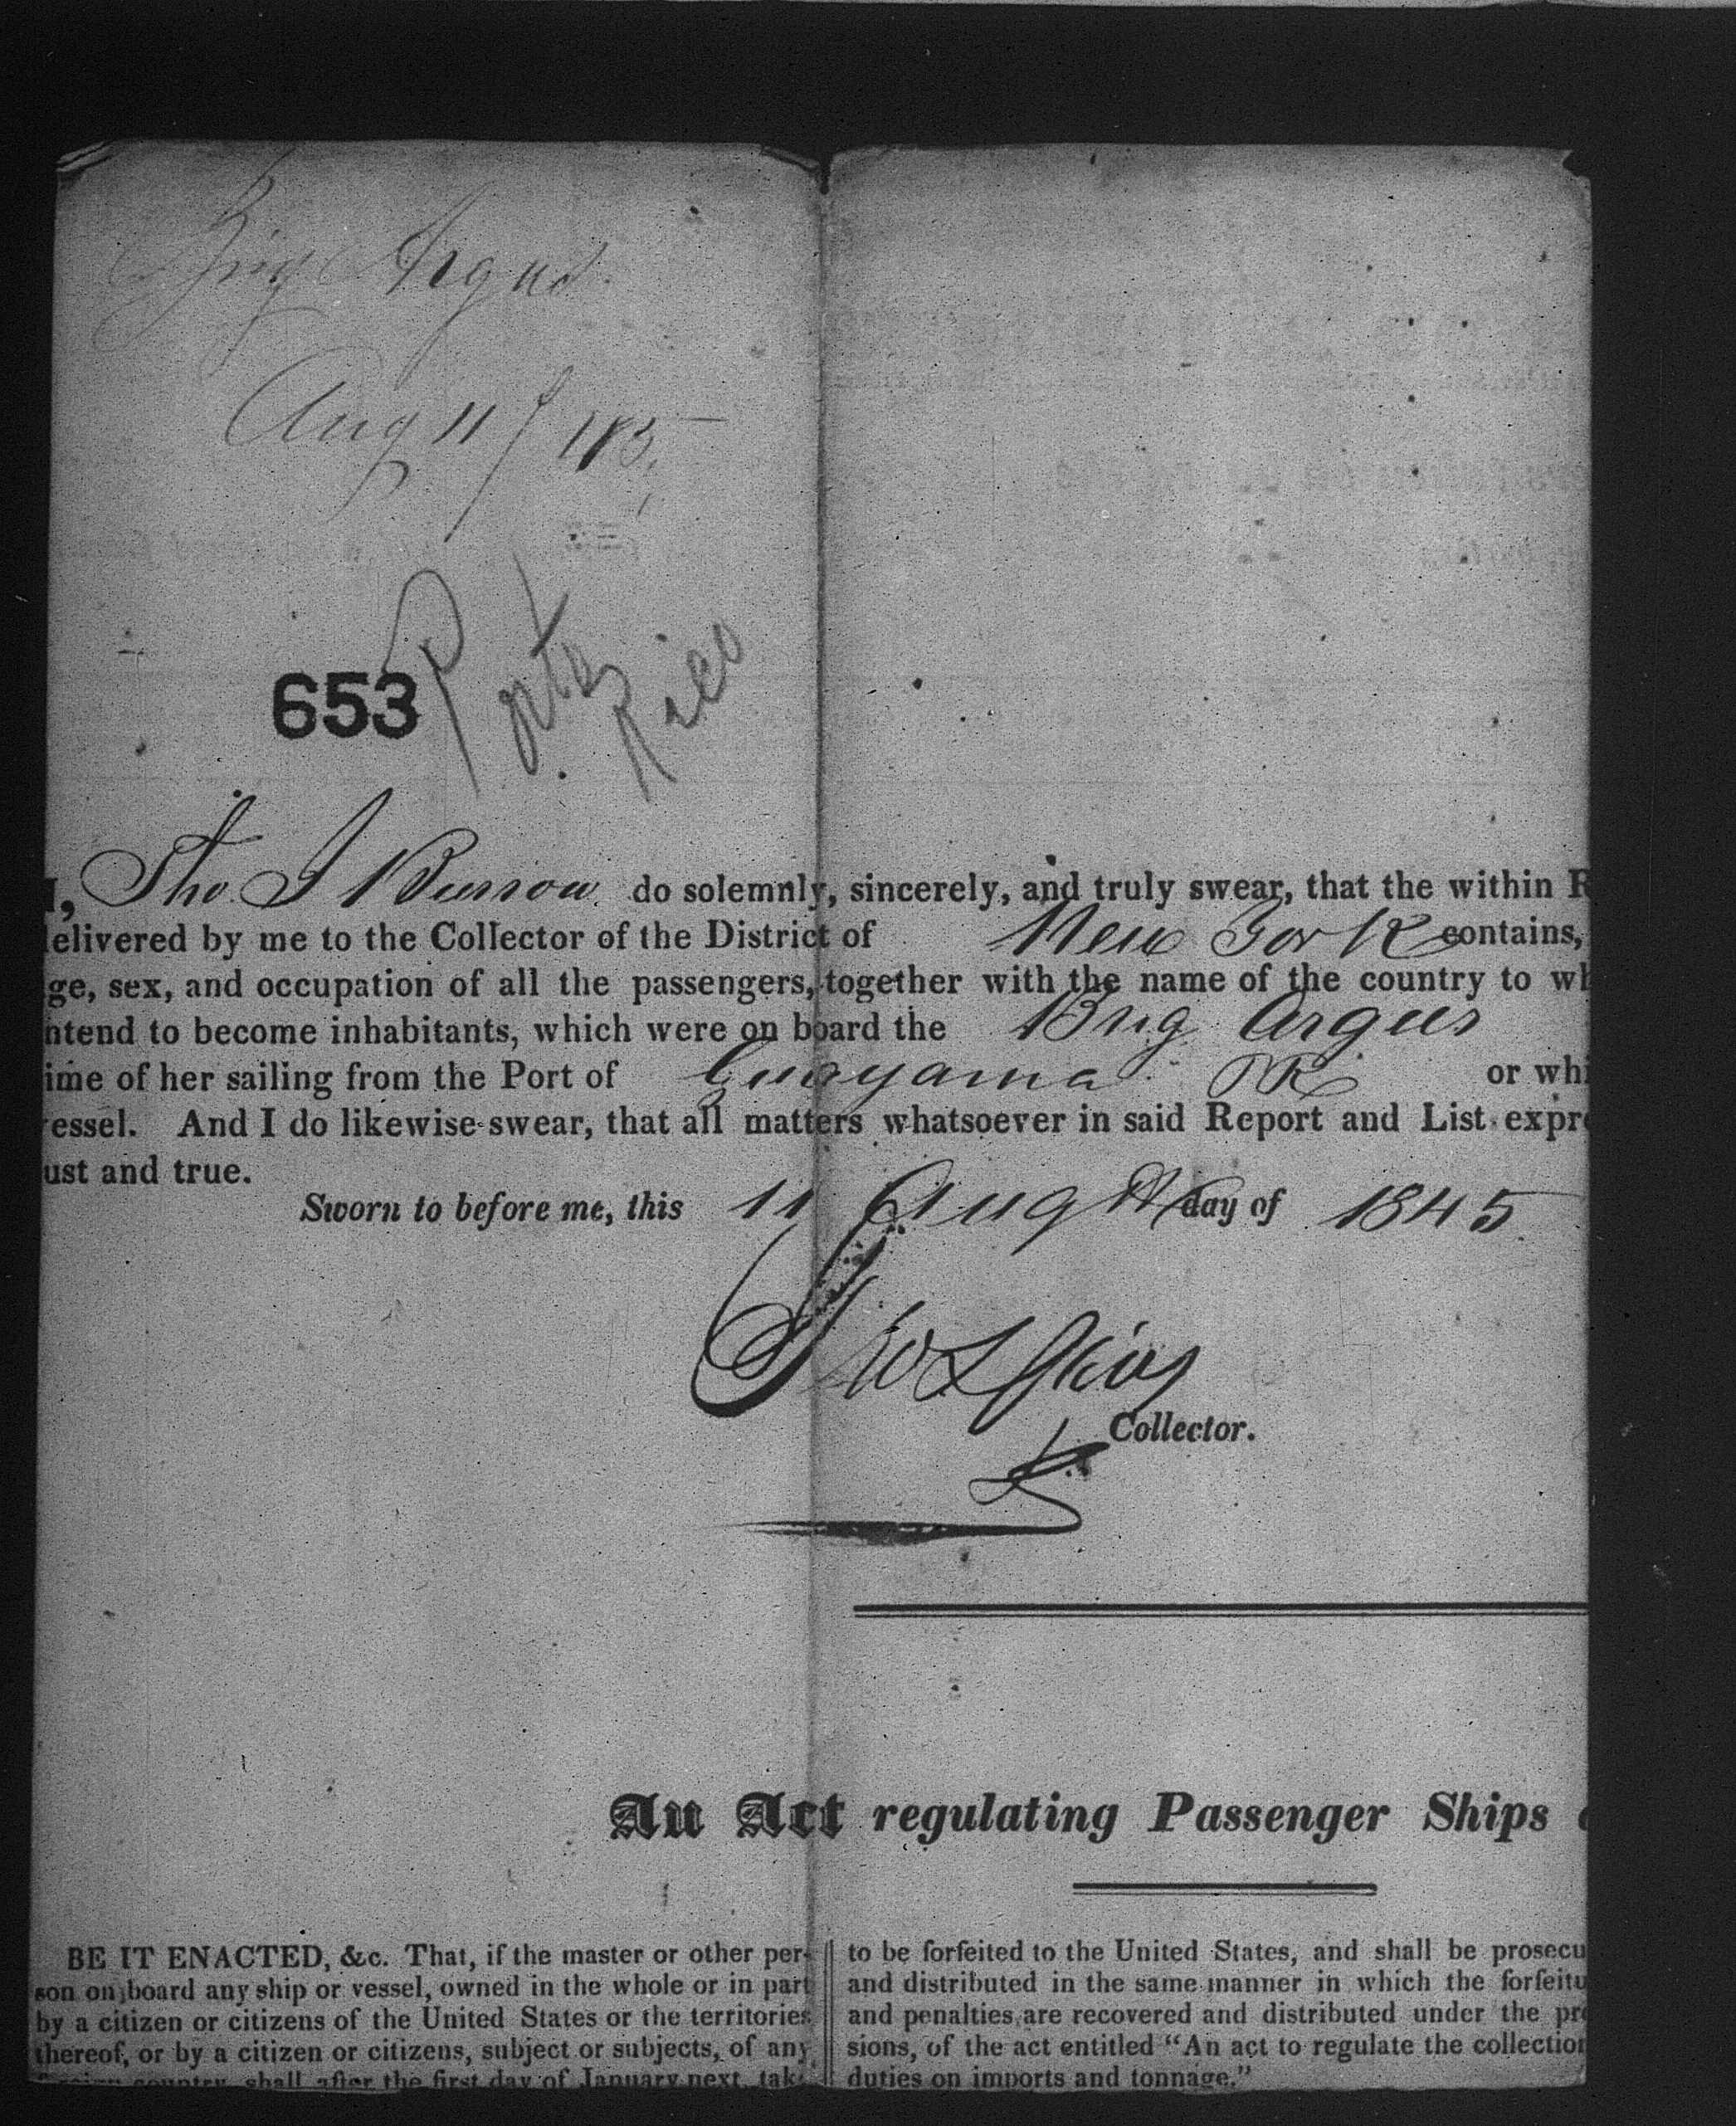 Brig Argus
Aug 11 / 1845
653
Porto
Rico
I, Tho J Burrow do solemnly, sincerely, and truly swear, that the within R
elivered by me to the Collector of the District of New York contains,
ge, sex, and occupation of all the passengers, together with the name of the country to wh
ntend to become inhabitants, which were on board the Brig Argus
ime of her sailing from the Port of Guayama PR or whi
essel. And I do likewise swear, that all matters whatsoever in said Report and List expre
ust and true.
Sworn to before me, this 11 Augst day of 1845
Collector.
An Act regulating Passenger Ships
BE IT ENACTED, &c. That, if the master or other per-
son on board any ship or vessel, owned in the whole or in part
by a citizen or citizens of the United States or the territories
thereof, or by a citizen or citizens, subject or subjects, of any
foreign country, shall after the first day of January next, take
to be forfeited to the United States, and shall be prosecu
and distributed in the same manner in which the forfeitu
and penalties are recovered and distributed under the pro
sions, of the act entitled "An act to regulate the collection
duties on imports and tonnage."